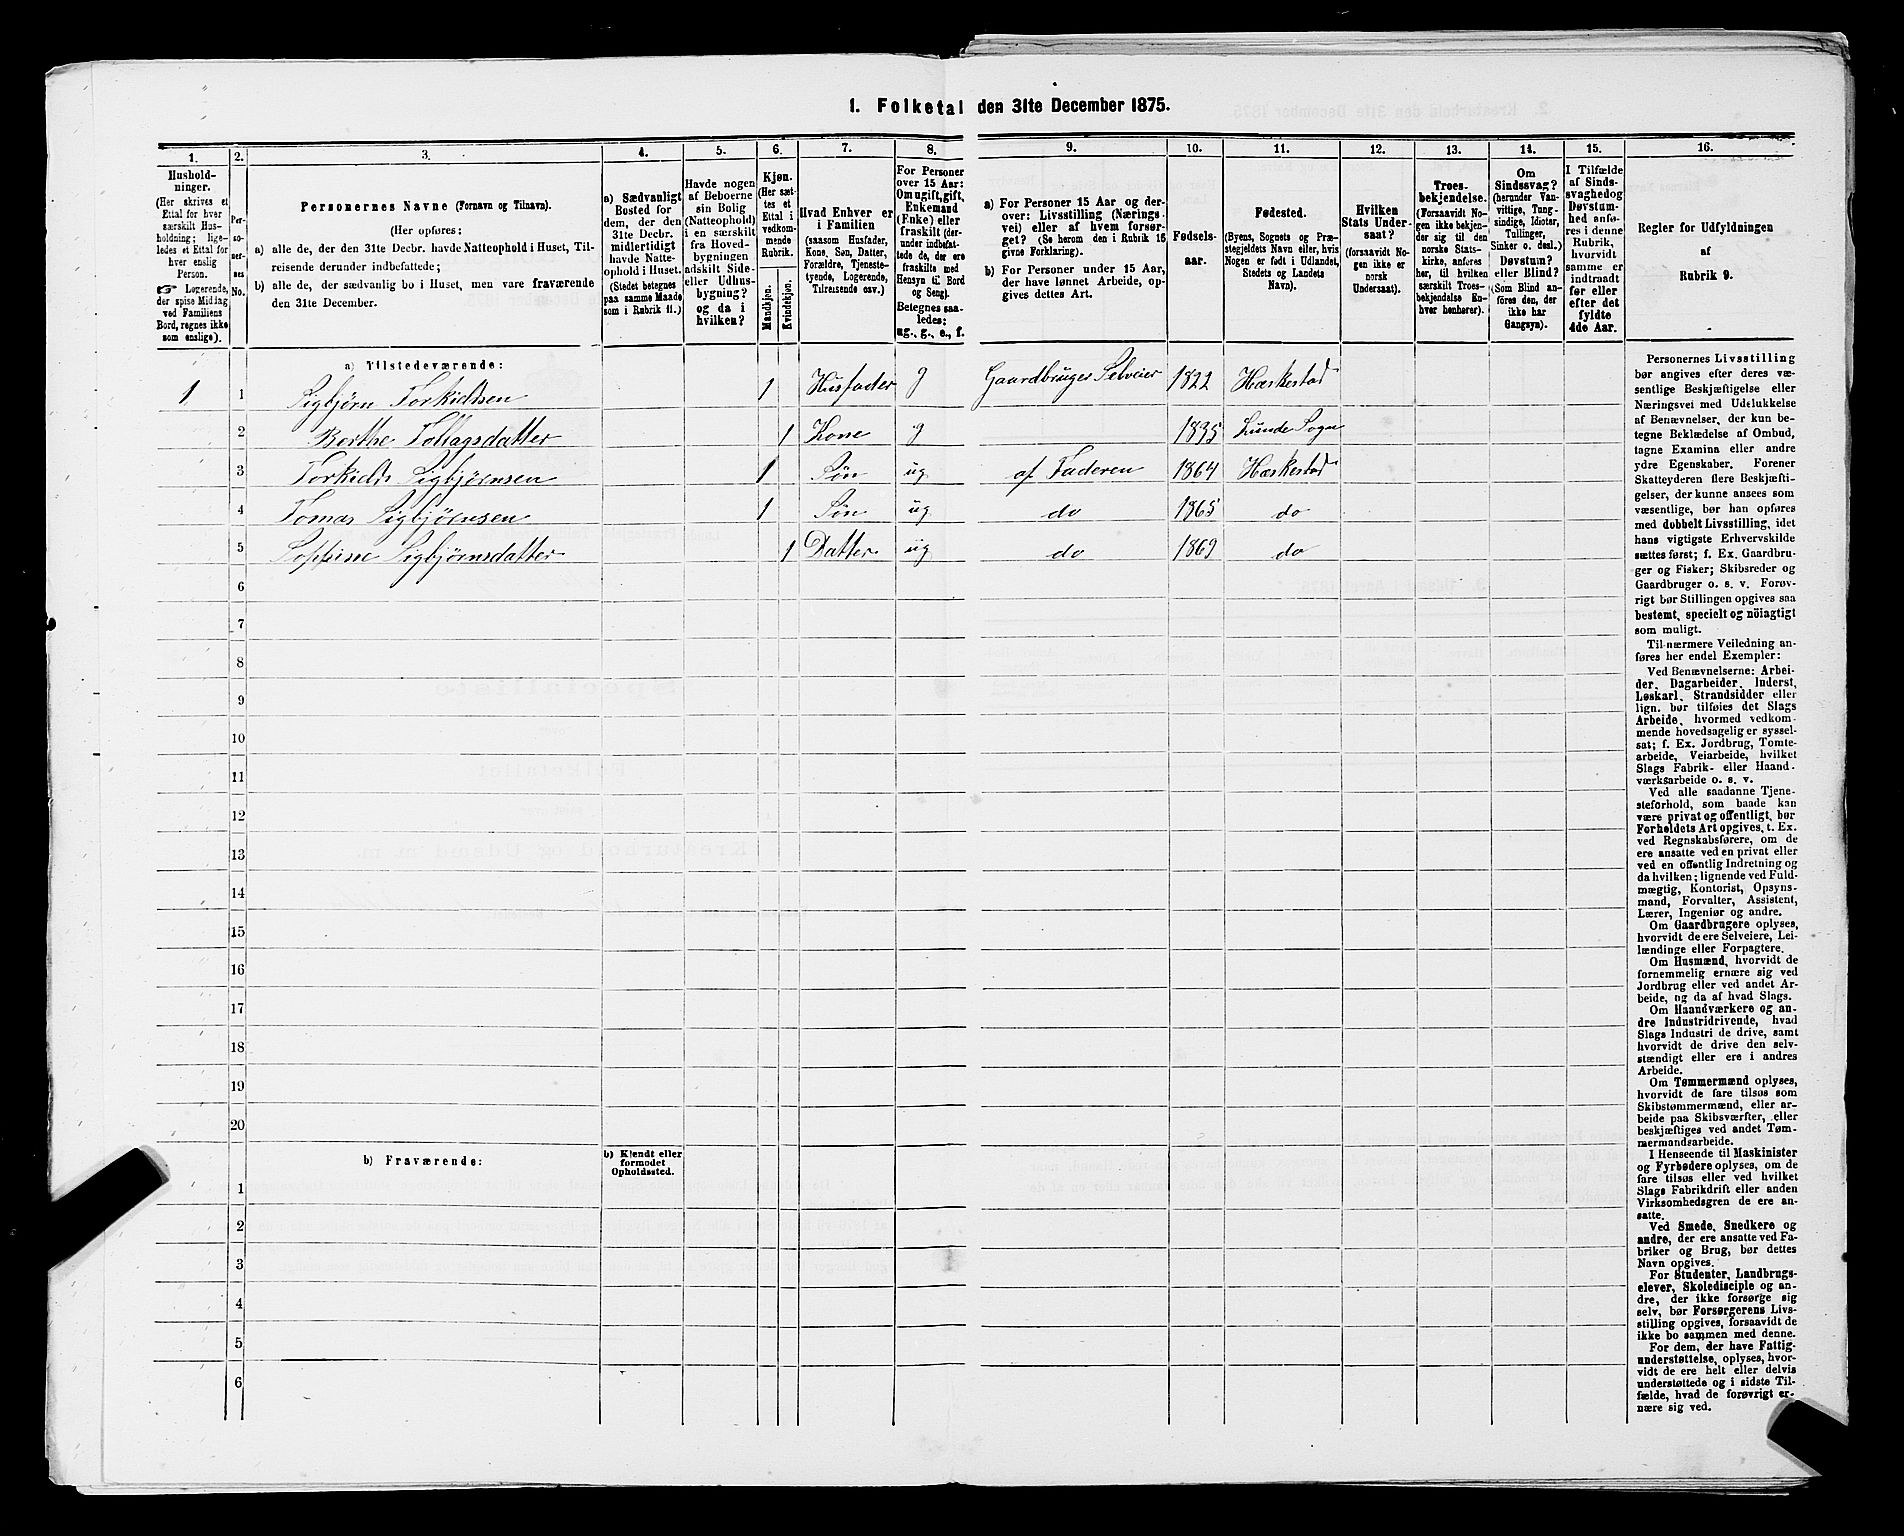 1. Folketal den 31te December 1875.
1. 2. 3. 4. 5. 6. 7. 8. 9. 10. 11. 12. 13. 14. 15. 16.
Hushold-
ninger.
(Her skrives et
Ettal for hver
særskilt Hus-
holdning; lige-
ledes et Ettal for
hver enslig
Person.
☞ Logerende,
der spise Middag
ved Familiens
Bord, regnes ikke
som enslige).
Per-
so-
ner-
nes
No.
Personernes Navne (Fornavn og Tilnavn).
(Her opføres:
a) alle de, der den 31te Decbr. havde Natteophold i Huset, Til-
reisende derunder indbefattede;
b) alle de, der sædvanlig bo i Huset, men vare fraværende
den 31te December.
a) Sædvanligt
Bosted for
dem, der den
31te Decbr.
midlertidigt
havde Natte-
ophold i Huset.
(Stedet betegnes
paa samme Maade
som i Rubrik 11.)
Havde nogen
af Beboerne
sin Bolig
(Natteophold)
i en særskilt
fra Hoved-
bygningen
adskilt Side-
eller Udhus-
bygning?
og da i
hvilken?
Kjøn.
(Her sæt-
tes et
Ettal i
vedkom-
mende
Rubrik.
Mandkjøn.
Kvindekjøn.
Hvad Enhver er
i Familien
(saasom Husfader,
Kone, Søn, Datter,
Forældre, Tjeneste-
tyende, Logerende,
Tilreisende osv.)
For Personer
over 15 Aar:
Om ugift, gift,
Enkemand
(Enke) eller
fraskilt (der-
under indbefat-
tede de, der ere
fraskilte med
Hensyn til Bord
og Seng).
Betegnes saa-
ledes:
ug., g., e., f.
a) For Personer 15 Aar og der-
over: Livsstilling (Nærings-
vei) eller af hvem forsør-
get? (Se herom den i Rubrik 16
givne Forklaring).
b) For Personer under 15 Aar,
der have lønnet Arbeide, op-
gives dettes Art.
Fødsels-
aar.
Fødested.
(Byens, Sognets og Præ-
stegjeldets Navn eller, hvis
Nogen er født i Udlandet,
Stedets og Landets
Navn).
Hvilken
Stats Under-
saat?
(forsaavidt No-
gen ikke er
norsk
Undersaat).
Troes-
bekjendelse.
(Forsaavidt No-
gen ikke bekjen-
der sig til den
norske Stats-
kirke, anføres
her, til hvilken
særskilt Troes-
bekjendelse En-
hver henhører).
Om
Sindssvag?
(herunder Van-
vittige, Tung-
sindige, Idioter,
Tullinger,
Sinker o. desl.).
Døvstum?
eller Blind?
(Som Blind an-
føres den, der
ikke har
Gangsyn).
I Tilfælde
af Sinds-
svaghed og
Døvstum-
hed anfø-
res i denne
Rubrik,
hvorvidt
samme er
indtraadt
før eller
efter det
fyldte
4de Aar.
Regler for Udfyldningen
af
Rubrik 9.
a) Tilstedeværende:
1 1 Sigbjørn Torkidsen 1 Husfader g Gaardbruger Selveier 1822 Hæskestad
2 Berthe Tollagsdatter 1 Kone g 1835 Lunde Sogn
3 Torkield Sigbjørnsen 1 Søn ug af Faderen 1864 Hæskestad
4 Tomas Sigbjørnsen 1 Søn ug do 1865 do
5 Soffine Sigbjørnsdatter 1 Datter ug do 1869 do
6
7
8
9
10
11
12
13
14
15
16
17
18
19
20
b) Fraværende:
b) Kjendt eller
formodet
Opholdssted.
1
2
3
4
5
6
Personernes Livsstilling
bør angives efter deres væ-
sentlige Beskjæftigelse eller
Næringsvei med Udelukkelse
af Benævnelser, der kun be-
tegne Beklædelse af Ombud,
tagne Examina eller andre
ydre Egenskaber. Forener
Skatteyderen flere Beskjæfti-
gelser, der kunne ansees som
væsentlige, bør han opføres
med dobbelt Livsstilling, idet
hans vigtigste Erhvervskilde
sættes først; f. Ex. Gaardbru-
ger og Fisker; Skibsreder og
Gaardbruger o. s. v. Forøv-
rigt bør Stillingen opgives saa
bestemt, specielt og nöiagtigt
som muligt.
Til nærmere Veiledning an-
føres her endel Exempler:
Ved Benævnelserne: Arbei-
der, Dagarbeider, Inderst,
Løskarl, Strandsidder eller
lign. bør tilføies det Slags
Arbeide, hvormed vedkom-
mende hovedsagelig er syssel-
sat; f. Ex. Jordbrug, Tomte-
arbeide, Veiarbeide, hvilket
Slags Fabrik- eller Haand-
værksarbeide o. s. v.
Ved alle saadanne Tjene-
steforhold, som baade kan
være privat og offentligt, bør
Forholdets Art opgives, t. Ex.
ved Regnskabsførere, om de
ere ansatte ved en privat eller
ved en offentlig Indretning og
da hvilken; lignende ved Fuld-
mægtig, Kontorist, Opsyns-
mand, Forvalter, Assistent,
Lærer, Ingeniør og andre.
Om Gaardbrugere oplyses,
hvorvidt de ere Selveiere, Lei-
lændinge eller Forpagtere.
Om Husmænd, hvorvidt de
fornemmelig ernære sig ved
Jordbrug eller ved andet Ar-
beide, og da af hvad Slags.
Om Haandværkere og an-
dre Industridrivende, hvad
Slags Industri de drive, samt
hvorvidt de drive den selv-
stændigt eller ere i andres
Arbeide.
Om Tømmermænd oplyses,
hvorvidt de fare tilsøs som
Skibstømmermænd, eller ar-
beide paa Skibsværfter, eller
beskjæftiges ved andet Tøm-
mermandsarbeide.
I Henseende til Maskinister
og Fyrbødere oplyses, om de
fare tilsøs eller ved hvilket
Slags Fabrikdrift eller anden
Virksomhedsgren de ere an-
satte.
Ved Smede, Snedkere og
andre, der ere ansatte ved Fa-
briker og Brug, bør dettes
Navn opgives.
For Studenter, Landbrugs-
elever, Skoledisciple og an-
dre, der ikke forsørge sig
selv, bør Forsørgerens Livs-
stilling opgives, forsaavidt de
ikke bo sammen med denne.
For dem, der have Fattig-
understøttelse, oplyses, hvor-
vidt de ere helt eller delvis
understøttede og i sidste Til-
fælde, hvad de forøvrigt er-
nære sig ved.